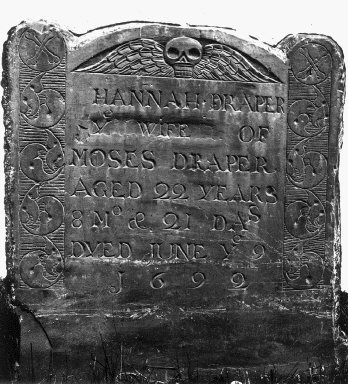 HANNAH · DRAPER
Yᵉ WIFE OF
MOSES DRAPER
AGED 22 YEARS
8 Mᵒ & 21 DAˢ
DYED JUNE Yᵉ 9
J 6 9 2